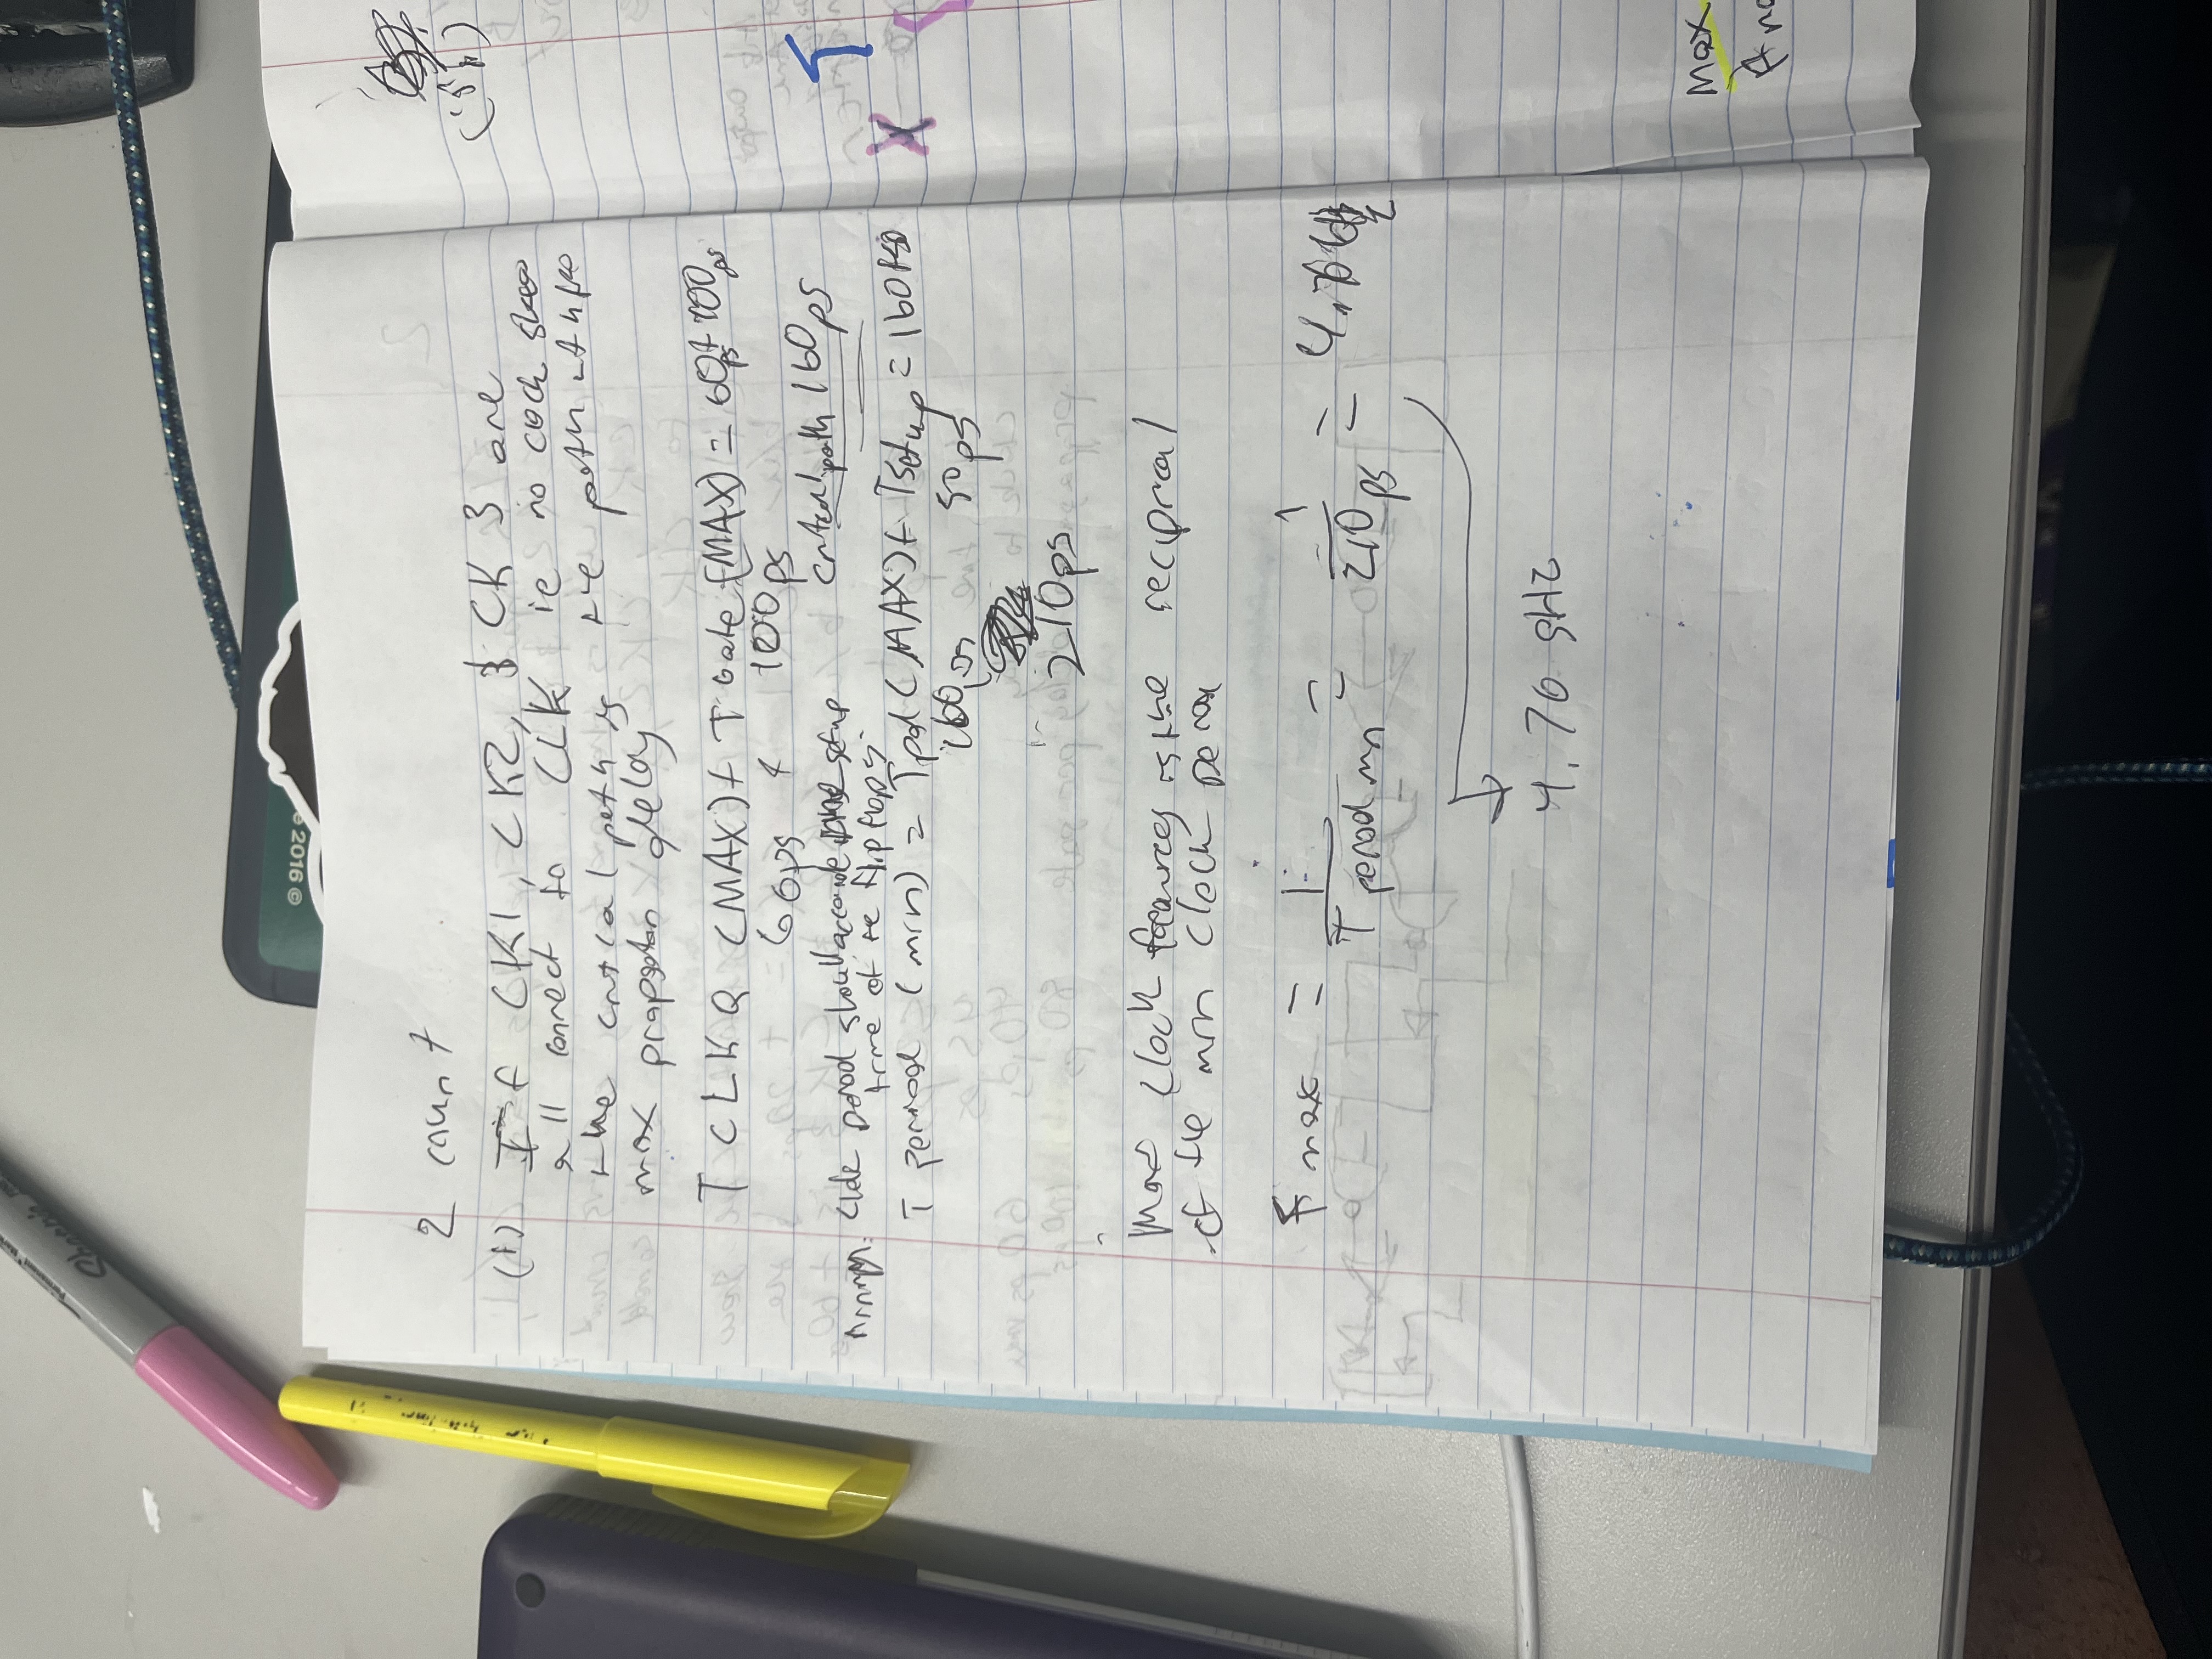 Sharpie
© 2016
2 count
(1) If CK1, CK2, & CK3 are
all connect to CLK ie no clock skew
the critical path is the path with
max propagation delay
T CLK Q (MAX) + T Gate (MAX) = 60ps + 100ps
60ps & 100ps
critical path 160ps
Clock period should setup
time of the flip flops
T period (min) = Tpd (MAX) + Tsetup = 160+50
160ps 50ps
210ps
Max clock frequency is the reciprical
of the min clock period
f max = 1 / T period min = 1 / 210 ps = 4.76 GHz
4.76 GHz
Max